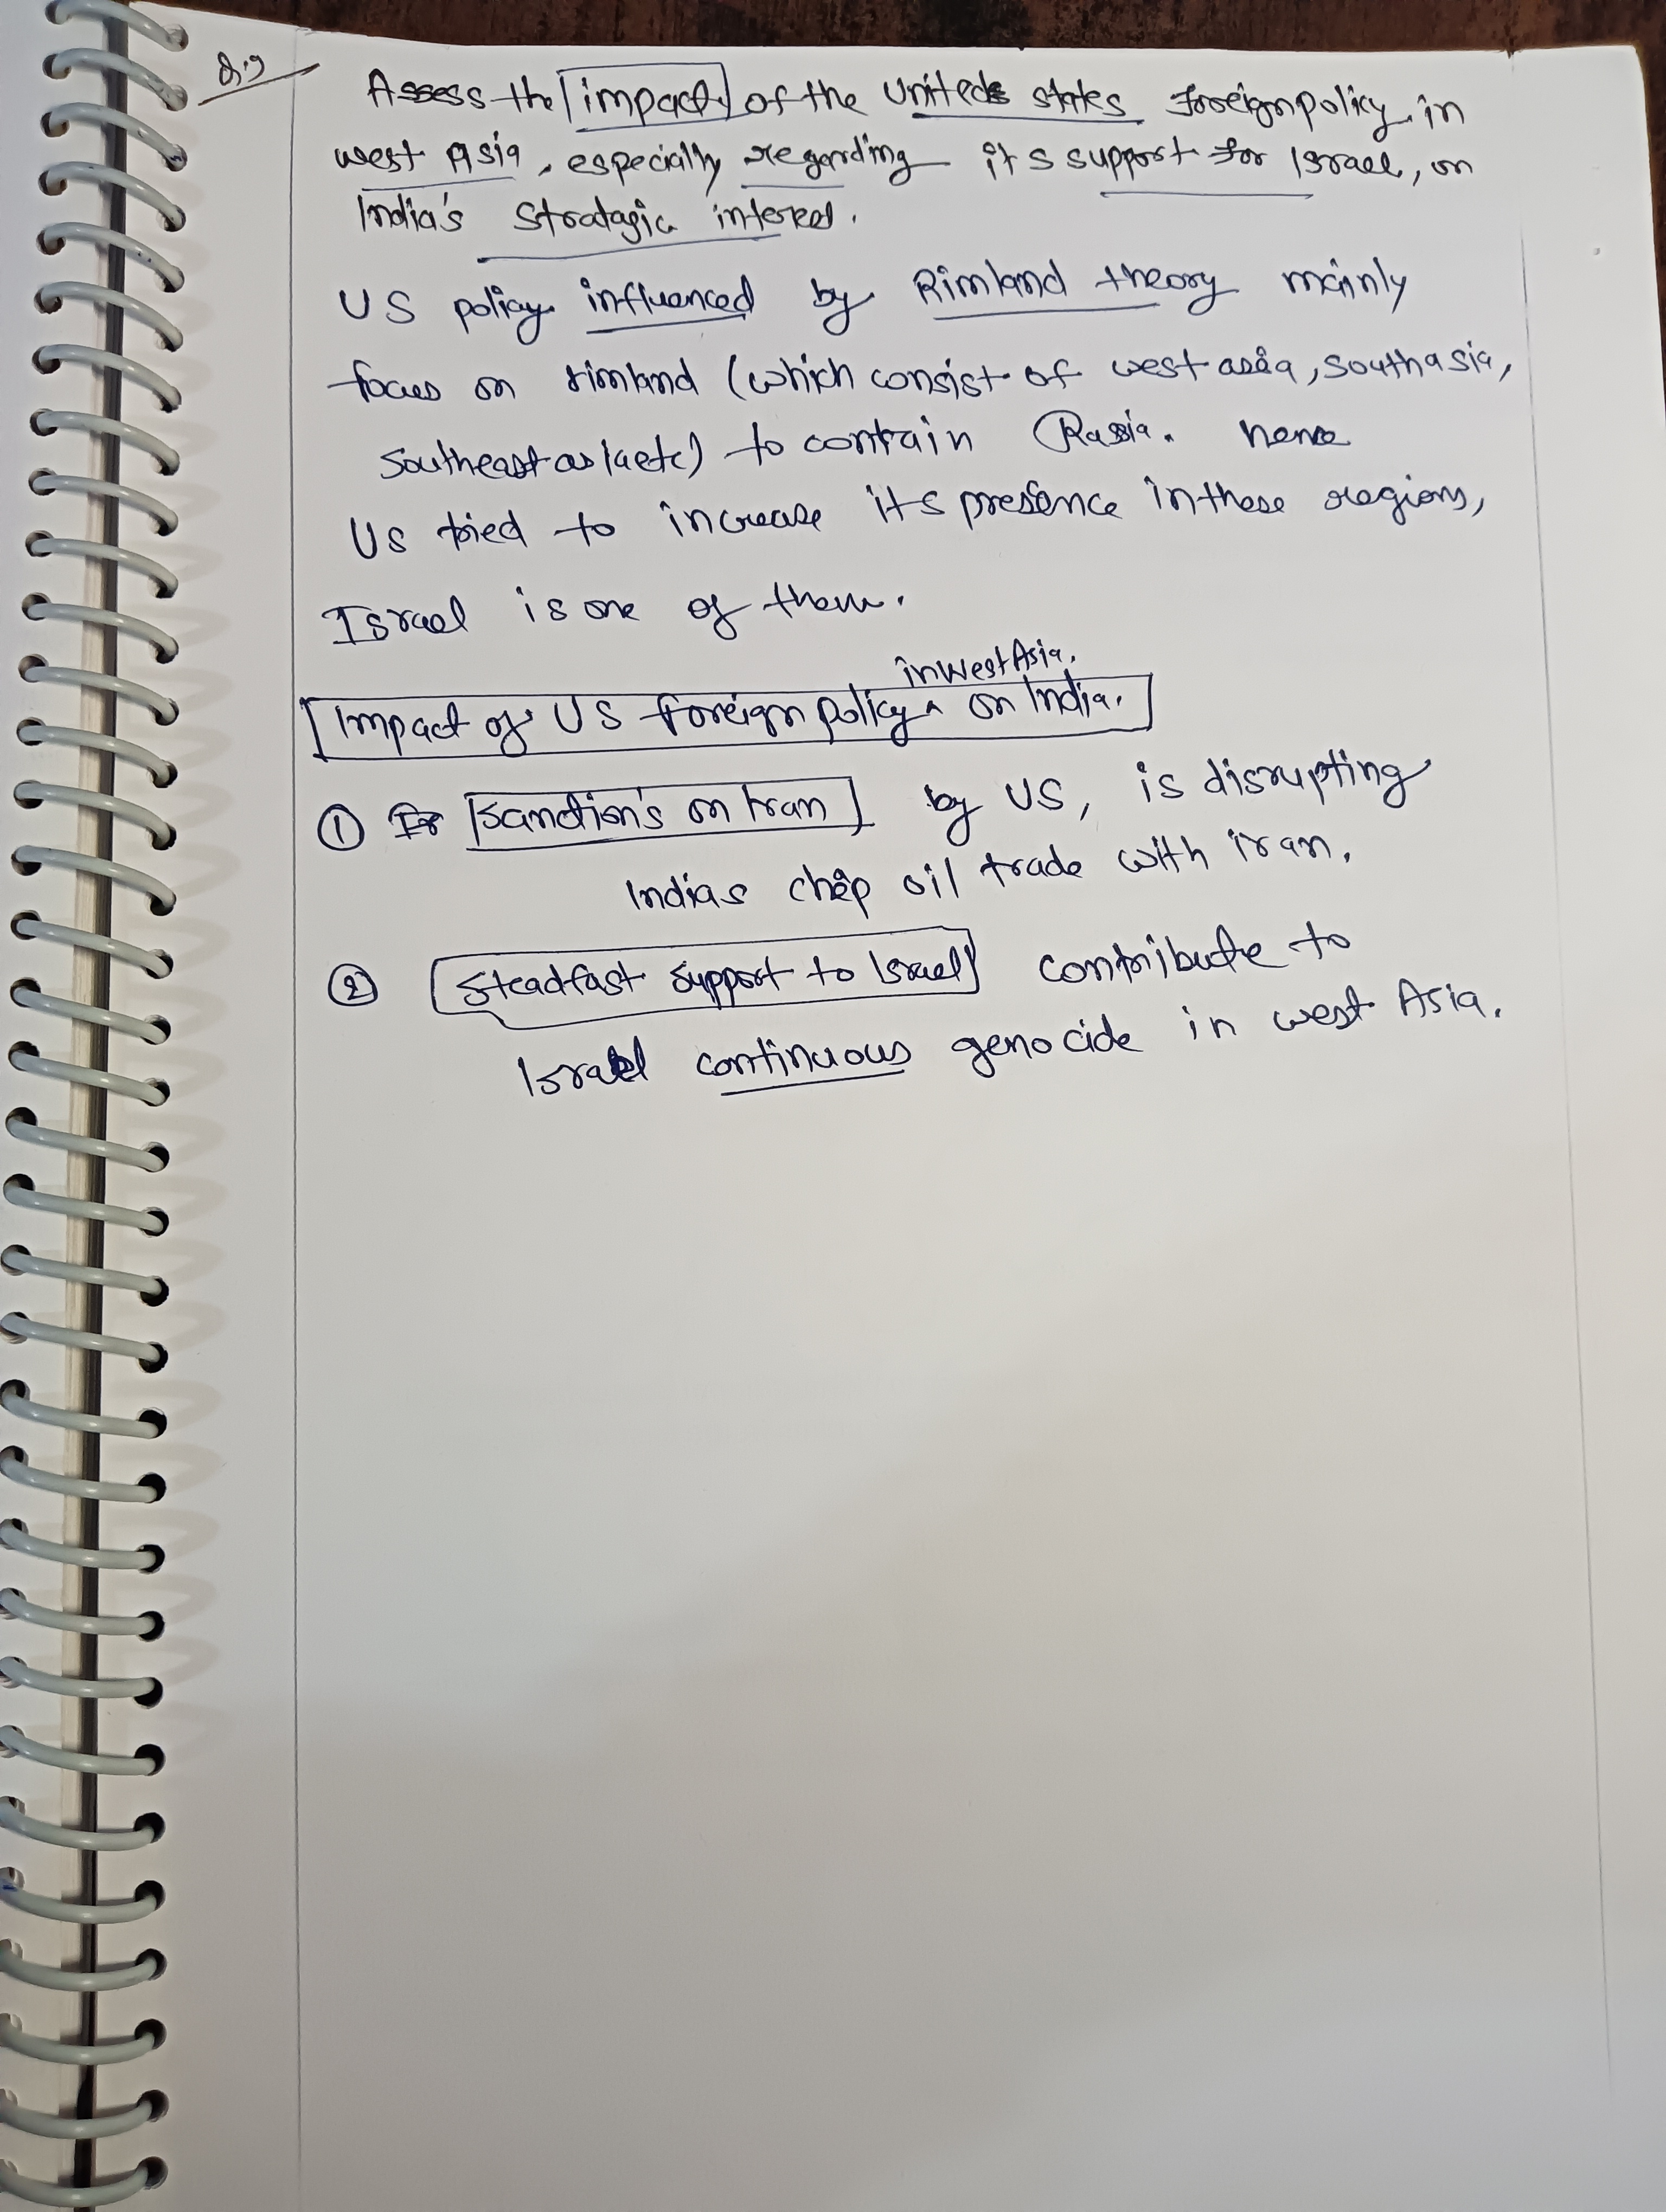 Q.9
Assess the impact of the United states foreign policy in
west Asia, especially regarding its support for Israel, on
India's Stratagic interest.
US policy influenced by Rimland theory mainly
focus on rimland (which consist of west asia, south asia,
southeast asia etc) to contain Russia. hence
US tried to increase its presence in these regions,
Israel is one of them.
in West Asia.
Impact of US foreign policy ^ on India.
① Sanction's on Iran by US, is disrupting
Indias chep oil trade with iran.
② Steadfast support to Israel contribute to
Israel continuous genocide in west Asia.